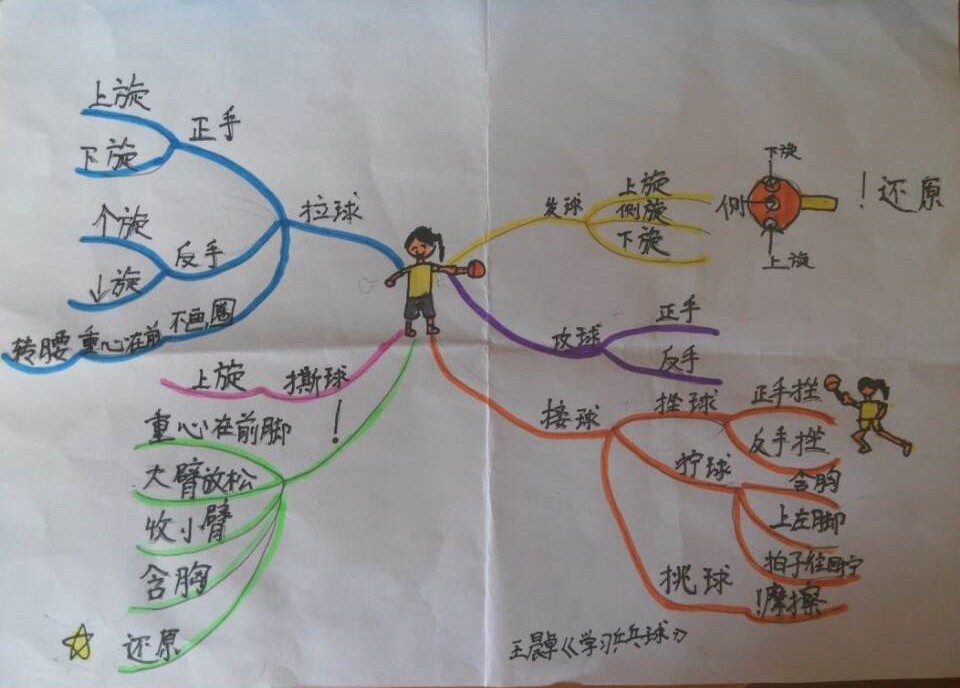 上旋
正手
下旋
拉球
个旋
反手
↓旋
不画圈
重心在前
转腰
上旋
撕球
!
重心在前脚
大臂放松
收小臂
含胸
还原
发球
上旋
侧旋
下旋
下旋
侧
上旋
!还原
攻球
正手
反手
接球
挫球
正手挫
反手挫
拧球
含胸
上左脚
拍子往
挑球
!摩擦
王晨卓《学习乒乓球》